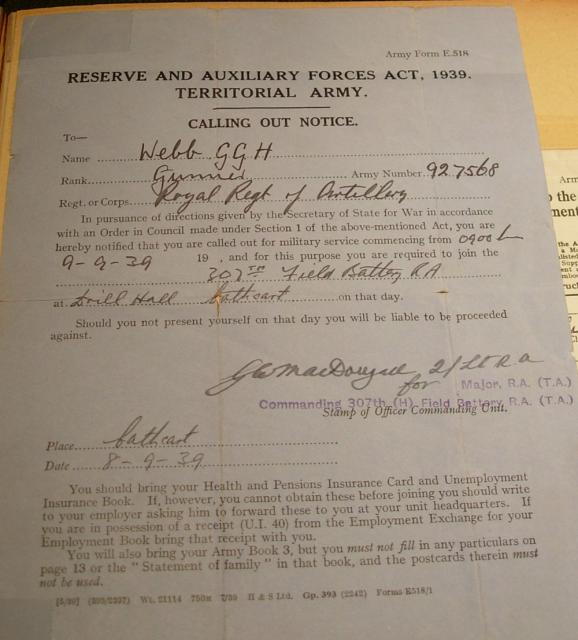 Army Form E.518
RESERVE AND AUXILIARY FORCES ACT, 1939.
TERRITORIAL ARMY.
CALLING OUT NOTICE.
To—
Name Webb GGH
Rank Gunner Army Number 927568
Regt. or Corps Royal Regt of Artillery
In pursuance of directions given by the Secretary of State for War in accordance
with an Order in Council made under Section 1 of the above-mentioned Act, you are
hereby notified that you are called out for military service commencing from 0900 h
9-9-39 19 , and for this purpose you are required to join the
307TH Field Battery RA
at Drill Hall Cathcart on that day.
Should you not present yourself on that day you will be liable to be proceeded
against.
MacDougall 2/Lt R.A
for Major, R.A. (T.A.)
Commanding 307th (H) Field Battery, R.A. (T.A.)
Stamp of Officer Commanding Unit.
Place Cathcart
Date 8-9-39
You should bring your Health and Pensions Insurance Card and Unemployment
Insurance Book. If, however, you cannot obtain these before joining you should write
to your employer asking him to forward these to you at your unit headquarters. If
you are in possession of a receipt (U.I. 40) from the Employment Exchange for your
Employment Book bring that receipt with you.
You will also bring your Army Book 3, but you must not fill in any particulars on
page 13 or the " Statement of family " in that book, and the postcards therein must
not be used.
[5/39] (393/2397) Wt. 21114 750M 7/39 H & S Ltd. Gp. 393 (2242) Forms E518/1